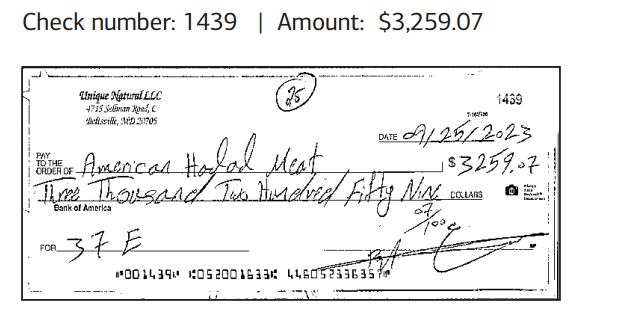 Check number: 1439 | Amount: $3,259.07
Unique Natural LLC
4715 Sellman Road, C
Beltsville, MD 20705
25
1439
DATE 09/25/2023
PAY
TO THE
ORDER OF American Halal Meat $3259.07
Three Thousand Two Hundred Fifty Nine DOLLARS
07/100
Bank of America
FOR 37 E
⑈001439⑈ ⑆052001633⑆ 446052336357⑈